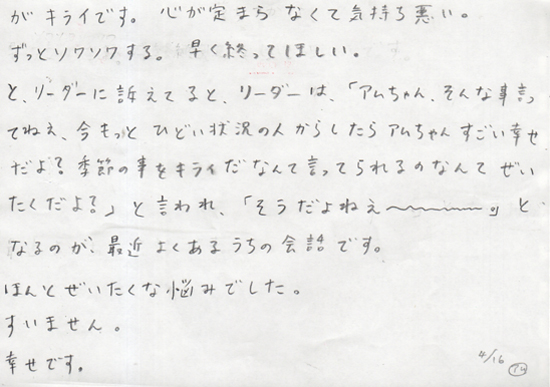 がキライです。心が定まらなくて気持ち悪い。
ずっとソワソワする。早く終ってほしい。
と、リーダーに訴えてると、リーダーは、「アムちゃん、そんな事言っ
てねえ、今もっとひどい状況の人からしたらアムちゃんすごい幸せ
だよ？季節の事をキライだなんて言ってられるのなんてぜい
たくだよ？」と言われ、「そうだよねぇ〜〜〜〜〜。」と
なるのが、最近よくあるうちの会話です。
ほんとぜいたくな悩みでした。
すいません。
幸せです。
4/16 アム